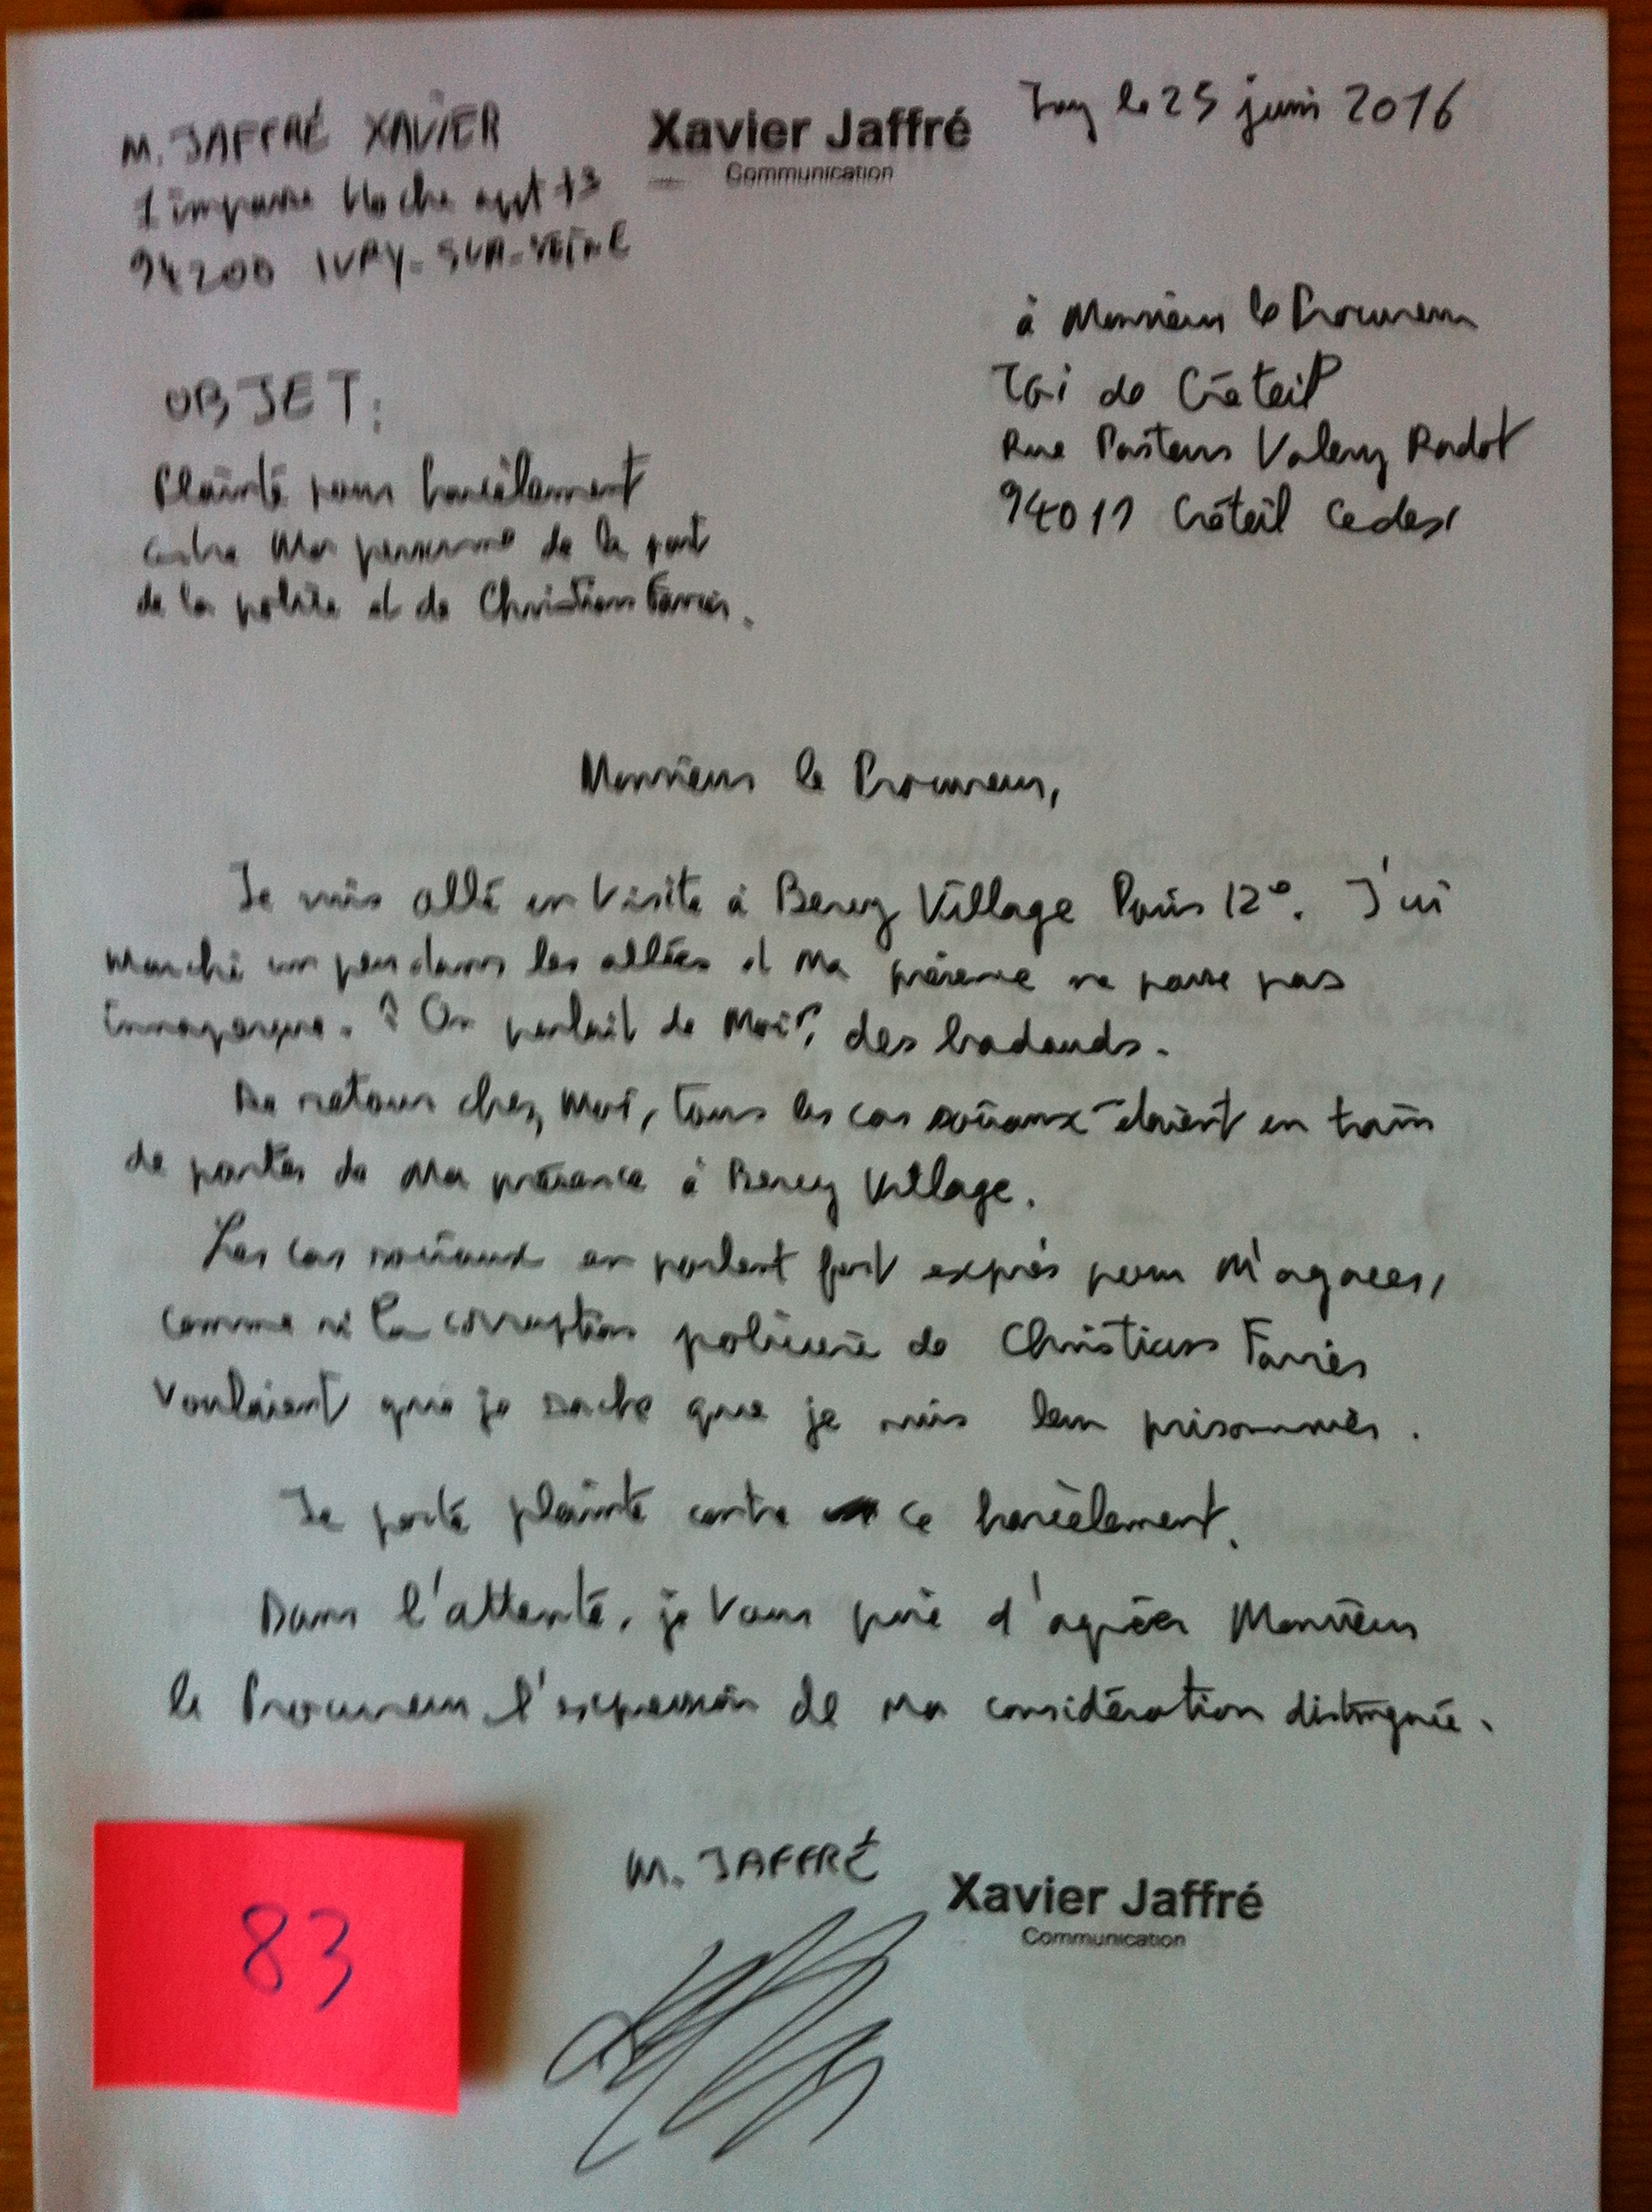 M. JAFFRÉ XAVIER
Xavier Jaffré
Communication
Ivry le 25 juin 2016
1 impasse Hoche apt 13
94200 IVRY-SUR-SEINE
à Monsieur le Procureur
TGI de Créteil
Rue Pasteur Valery Radot
94011 Créteil Cedex
OBJET:
Plainte pour harcèlement
contre Ma personne de la part
de la police et de Christian Favier.
Monsieur le Procureur,
Je suis allé en Visite à Bercy Village Paris 12°. J'ai
Marché un peu dans les allées et Ma présence ne passe pas
"On parlait de Moi", des badauds.
De retour chez Moi, tous les cas sociaux étaient en train
de parler de Ma présence à Bercy Village.
Les cas sociaux en parlent fort exprès pour M'agacer,
comme si la corruption policière de Christian Favier
Voulaient que je sache que je suis leur prisonnier.
Je porte plainte contre ce harcèlement.
Dans l'attente, je Vous prie d'agréer Monsieur
le Procureur l'expression de Ma considération distinguée.
M. JAFFRÉ
Xavier Jaffré
Communication
83